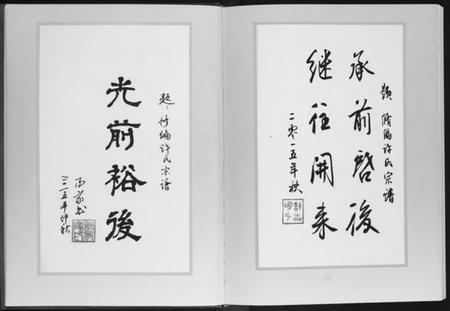 題 修編许氏宗譜
承前啓後
继往開来
二零一五年秋
题·修编许氏宗谱
光前裕後
二〇一五年仲秋